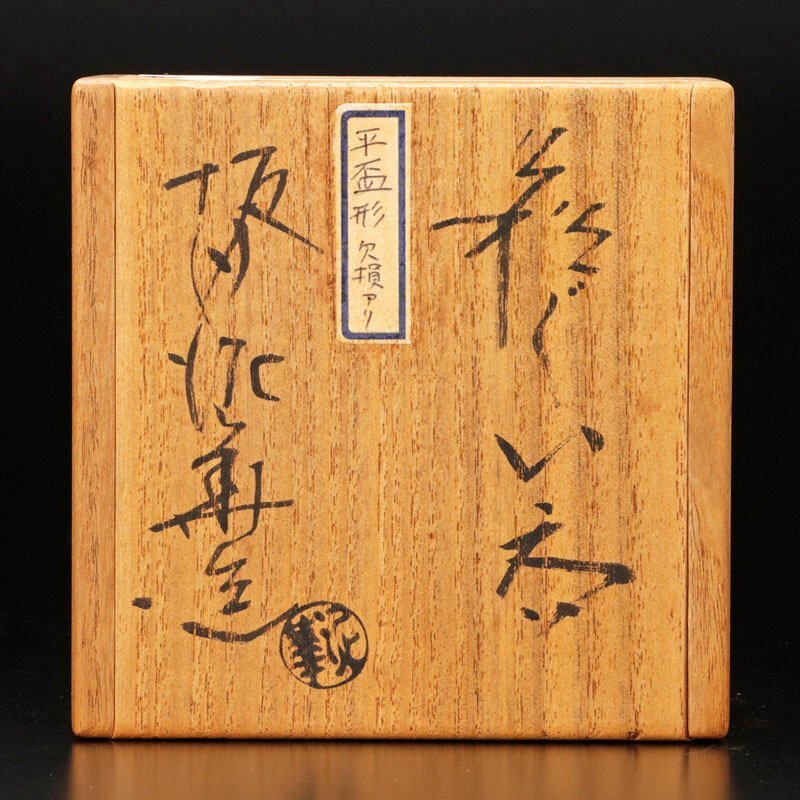 萩ぐい呑
平盃形 欠損アリ
坂田泥華造
泥華